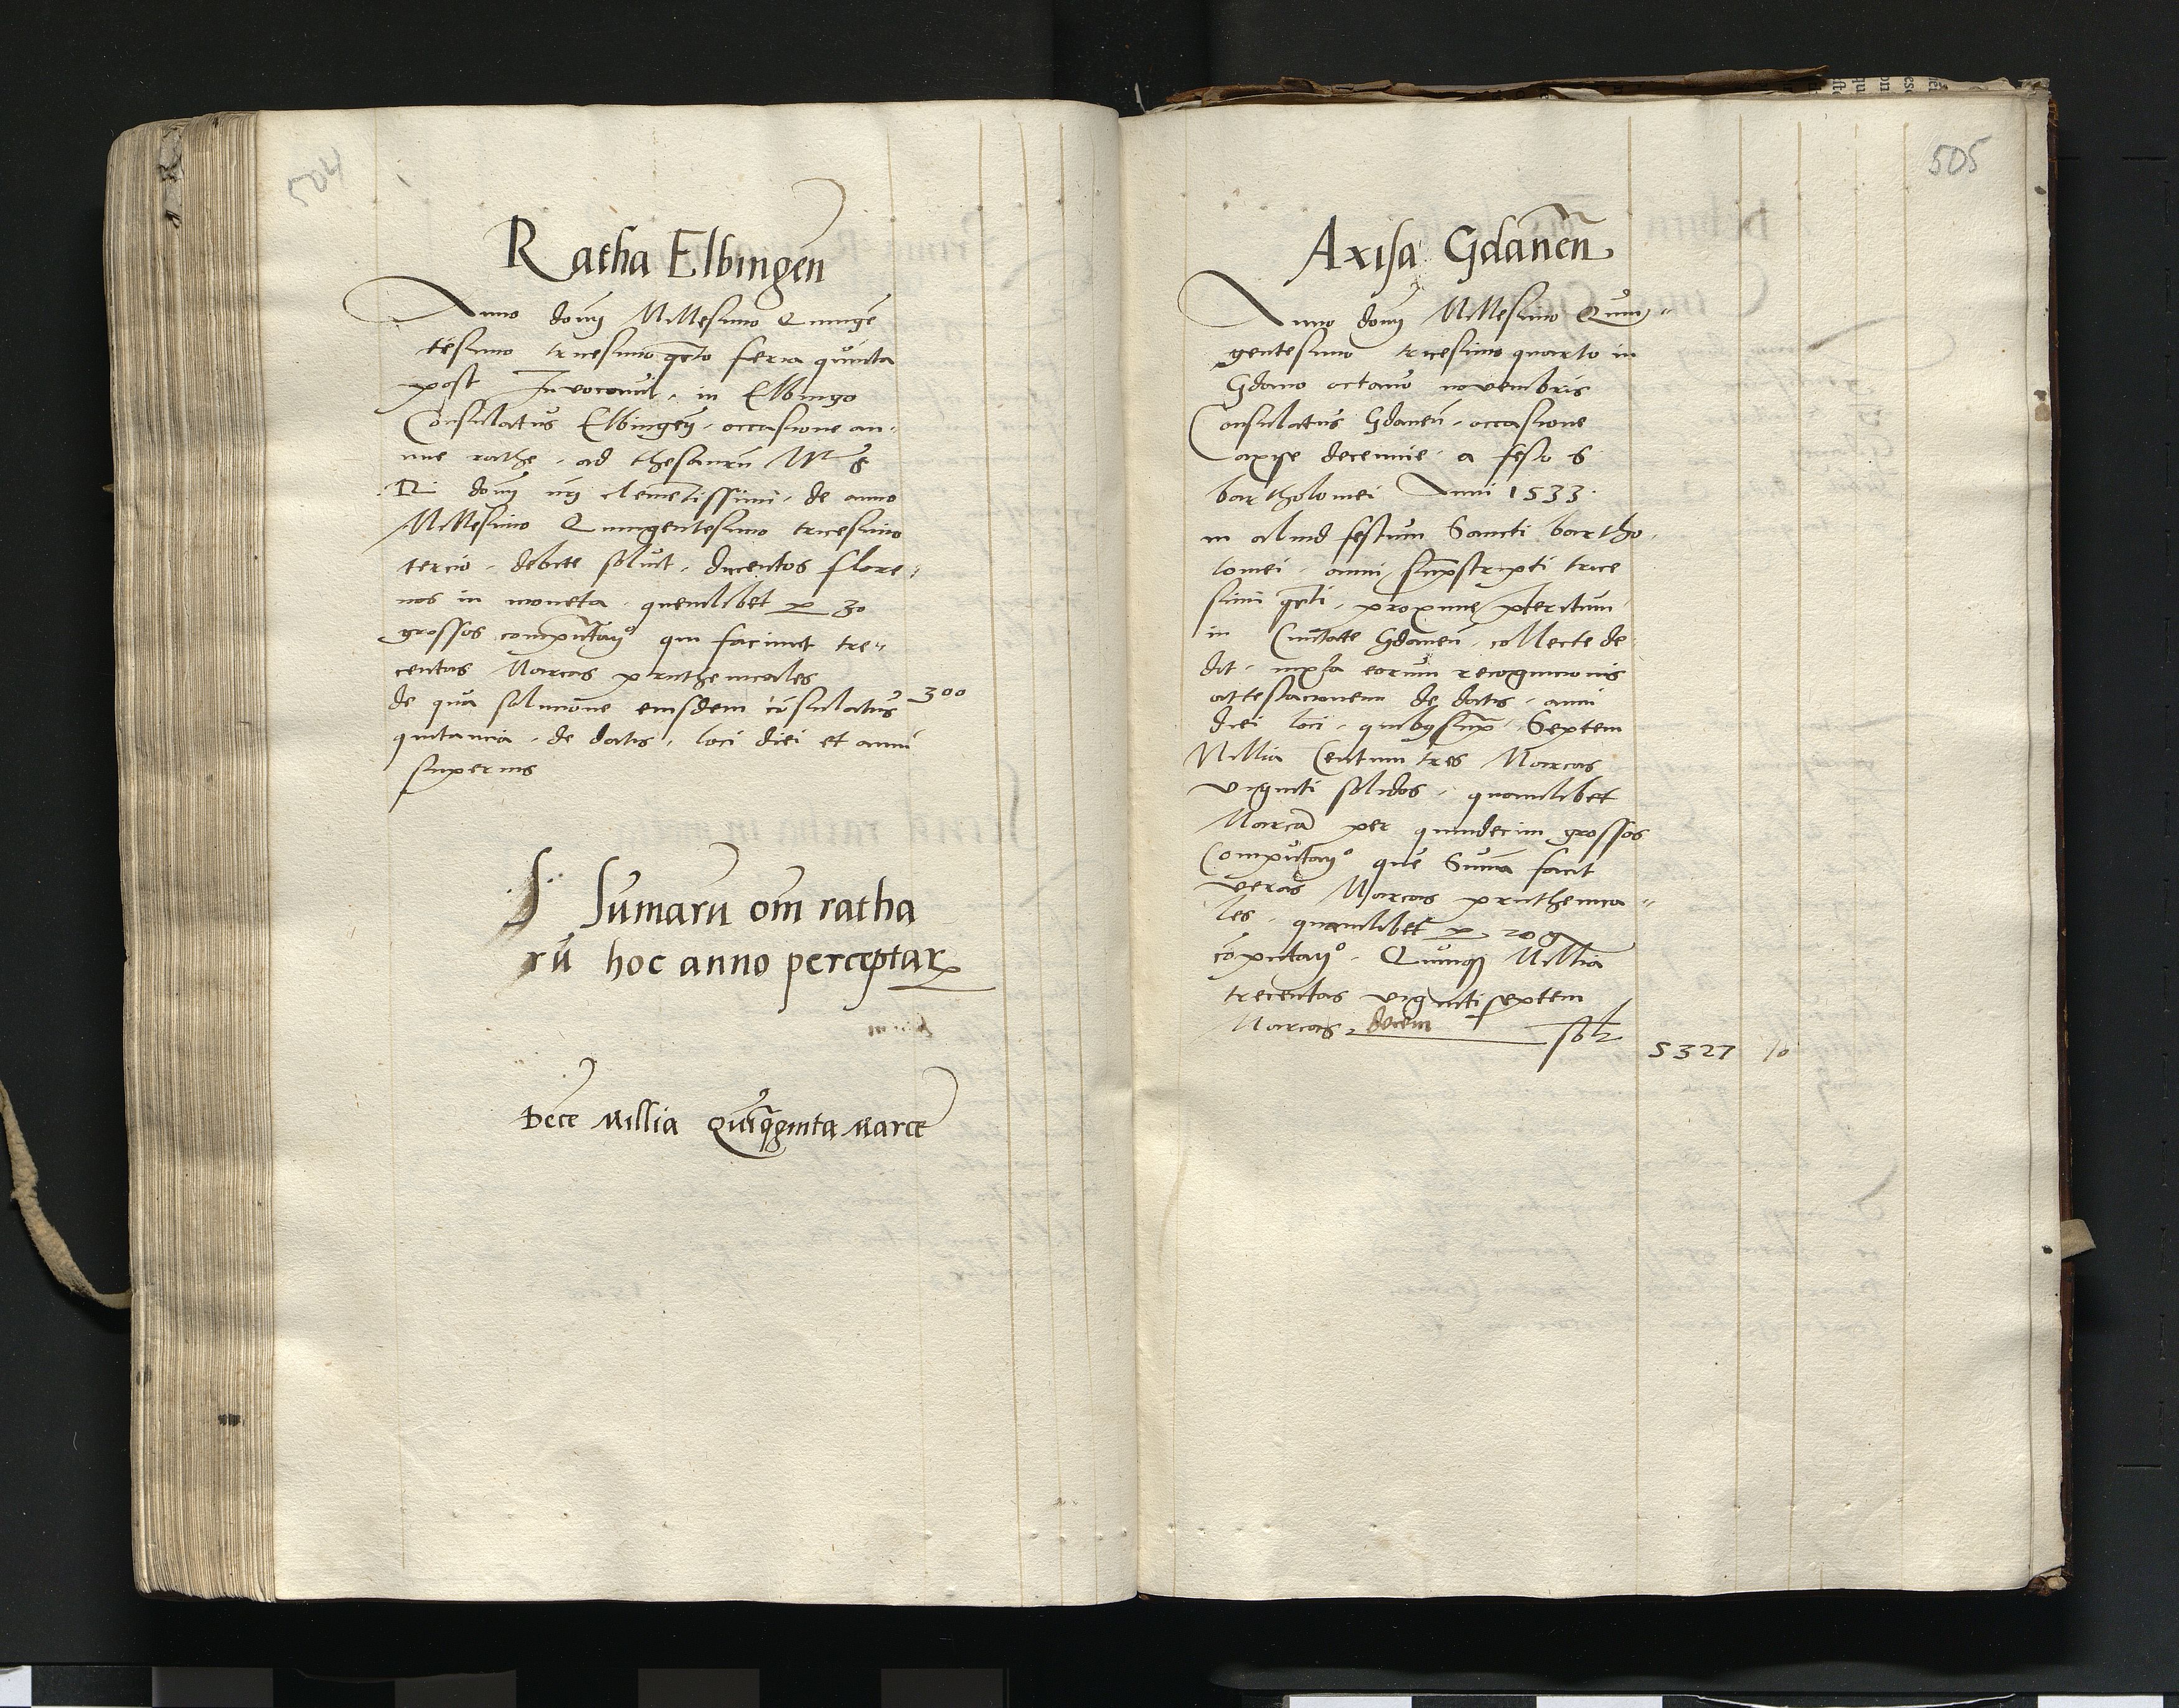 504
Ratha Elbingen̄
Anno domī Millesimo Quingē
tesimo tricesimo q̄rto feria quinta
post Invocavit, in Elbingo
Consulatus Elbingen̄, occasione an¬
nue rathe, ad thesaurū
R domī nrī clemētissimi, de anno
Millesimo Quingentesimo tricesimo
tercio, debite soluit, ducentos flore¬
nos in moneta, quemlibet p 30
grossos computan̄o qui faciunt tre¬
centas Marcas pruthenicales
de qua solucione eiusdem cōsulatus 300
quitancia, de datis, loci diei et anni
superius
S Sumarū om̄ ratha
rū hoc anno perceptarꝝ
Decē Millia Quīq̄ginta Marcē
505
Axisa Gdanen̄
Anno domī Millesimo Quin¬
gentesimo tricesimo quarto in
Gdano octava novembris
Consulatus Gdanen̄, occasione
axise decennie, a festo S
bartholomei Anni 1533
in aliud festum Sancti bartho
lomei, anni supscripti trice
simi q̄rti, proxime p̄teritum
in Ciuitate Gdanen̄, collecte de
dit, iuxta eorum recognicionis
attestacionem de datis, anni
diei loci, quibꝫ sup̄, Septem
Millia Centum tres Marcas
viginti solidos, quamlibet
Marcā per quindecim grossos
Computan̄o que Suma facit
veras Marcas pruthenica¬
les, quamlibet p 20 g
cōputan̄o, Quinqꝫ Millia
trecentas viginti septem
Marcas, decem sol 5327 10